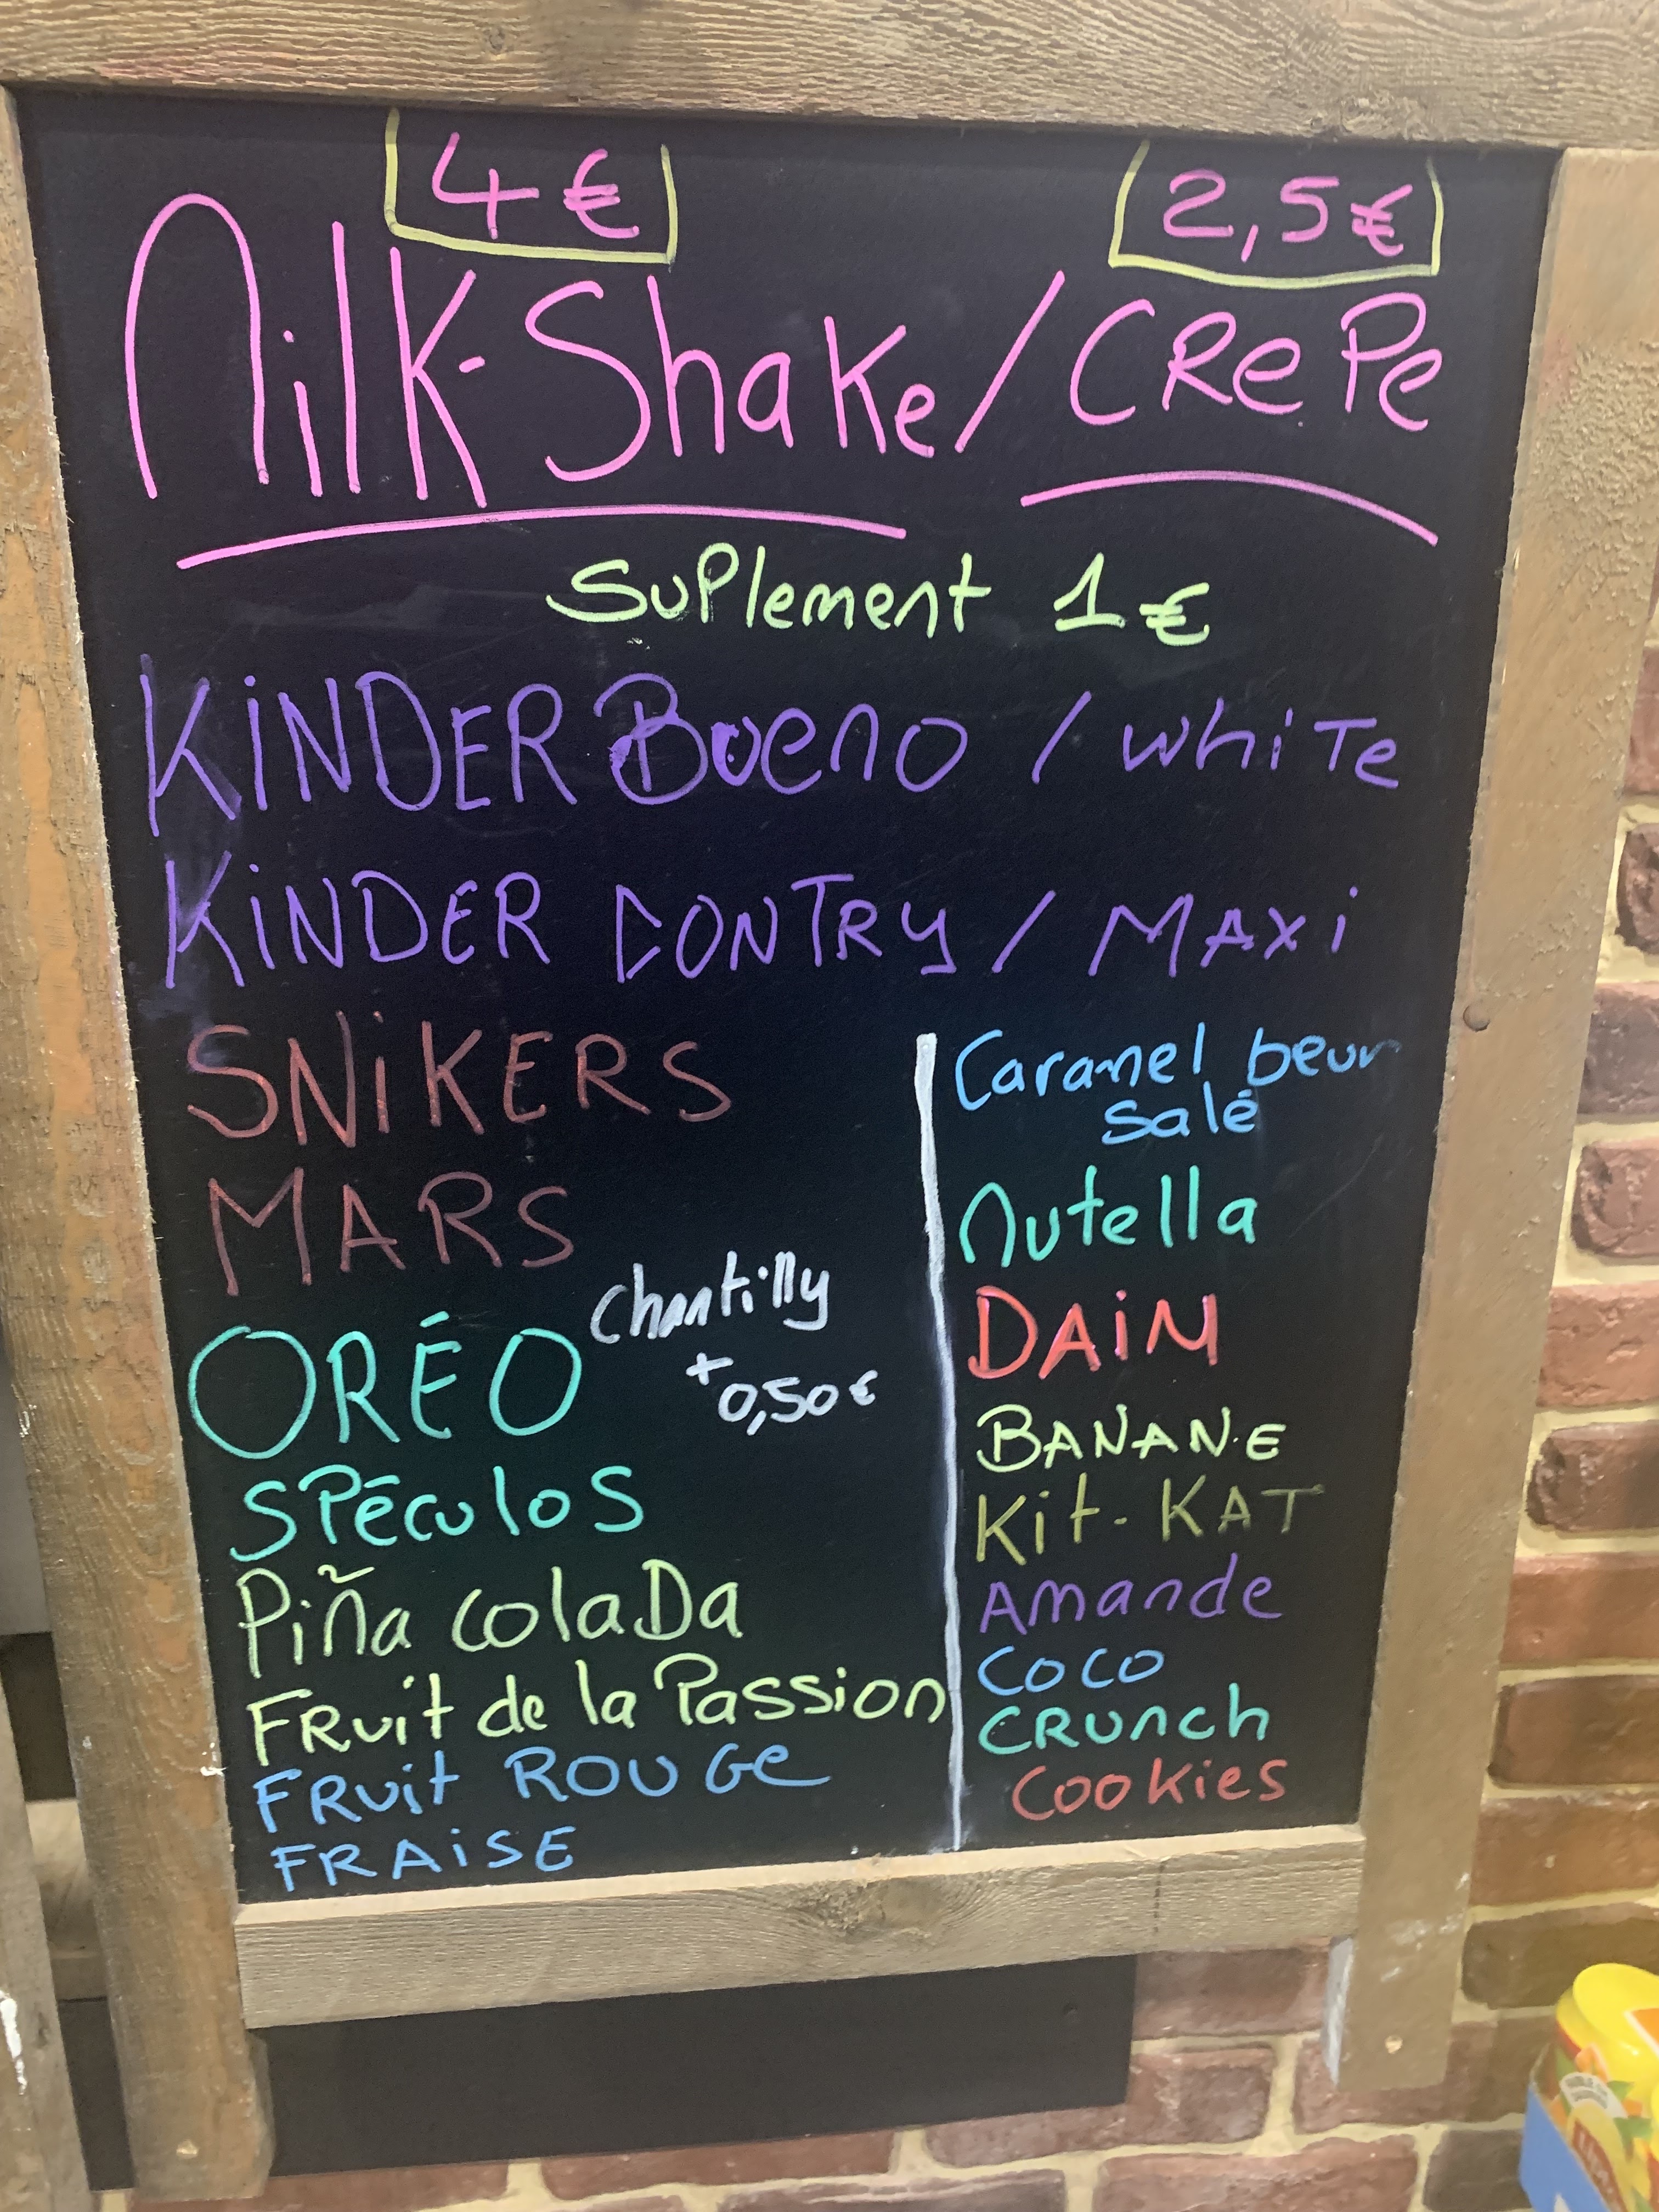 4€
2,5€
Milk-Shake/CRePe
SuPlement 1€
KiNDER Bueno / whiTe
KiNDER CONTRY / MAXi
SNiKERS
MARS
ORÉO
Chantilly
+0,50€
SPéculoS
Piña colaDa
FRuit de la Passion
FRuit ROUGe
FRAiSE
Caramel beurr
salé
nutella
DAiM
BANANE
Kit-KAT
Amande
COCO
CRUnch
COOKies